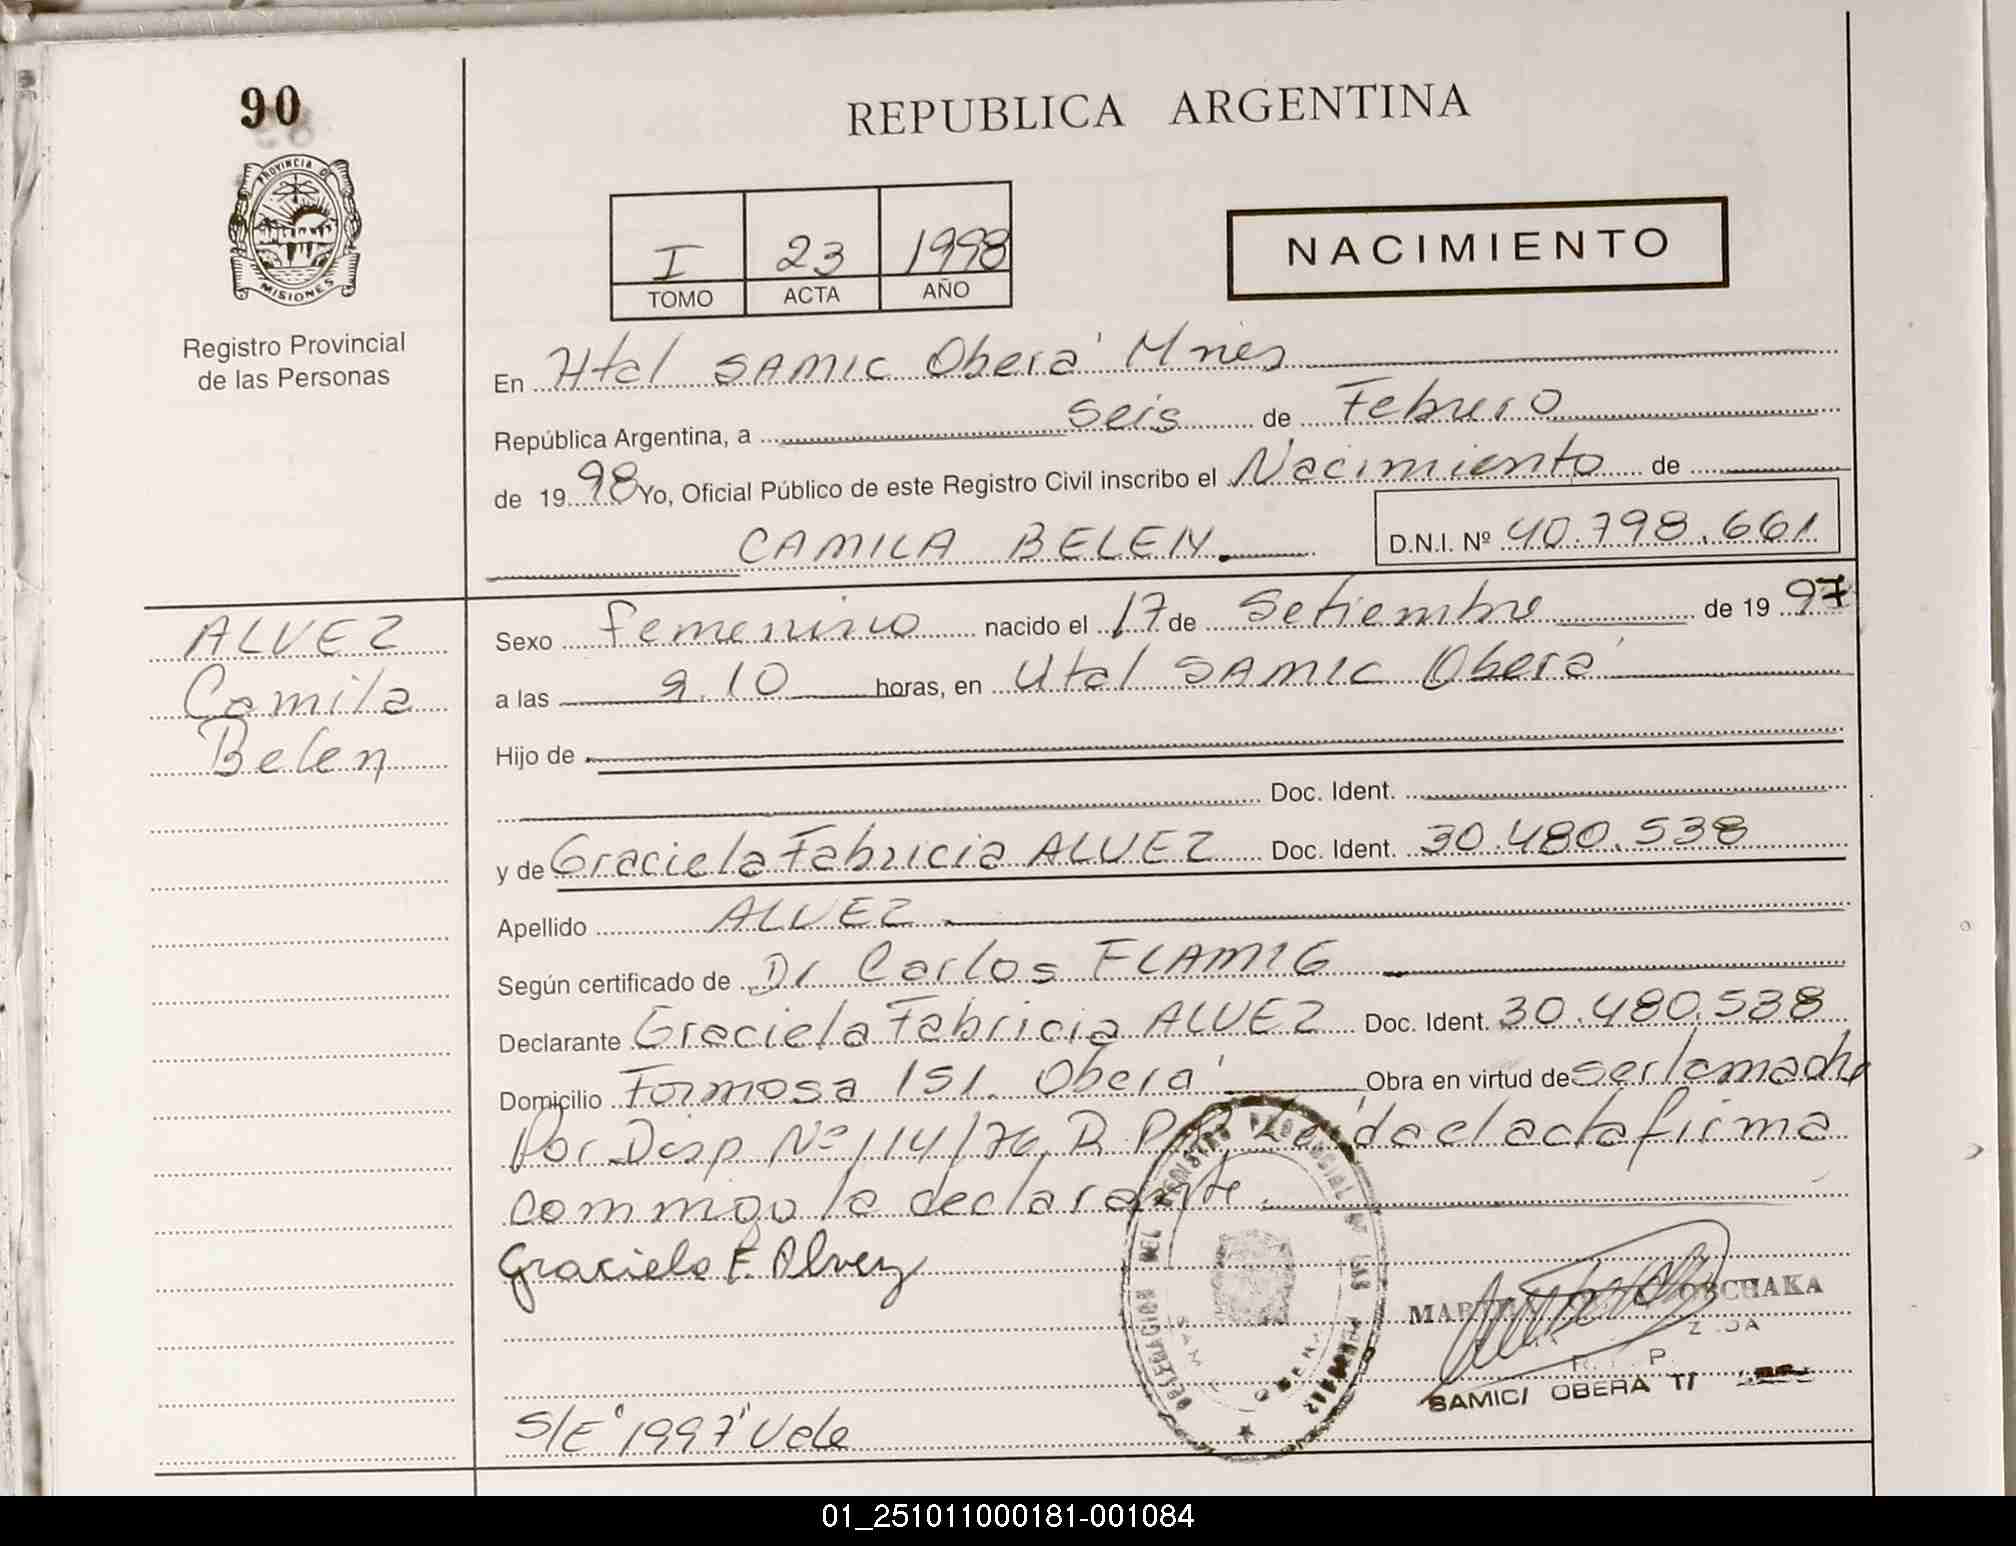 90
REPUBLICA ARGENTINA
PROVINCIA DE
MISIONES
I 23 1998
TOMO ACTA AÑO
NACIMIENTO
Registro Provincial
de las Personas
En Htal SAMIC Oberá Mnes
República Argentina, a seis de Febrero
de 1998 Yo, Oficial Público de este Registro Civil inscribo el Nacimiento de
CAMILA BELEN. D.N.I. Nº 40.798.661
ALVEZ
Camila
Belen
Sexo femenino nacido el 17 de Setiembre de 1997
a las 9.10 horas, en Htal SAMIC Oberá
Hijo de
Doc. Ident.
y de Graciela Fabricia ALVEZ Doc. Ident. 30.480.538
Apellido ALVEZ
Según certificado de Dr Carlos FLAMIG
Declarante Graciela Fabricia ALVEZ Doc. Ident. 30.480.538
Domicilio Formosa 151. Oberá Obra en virtud de ser la madre
Por Disp Nº 114/76 R.P.P. Leída el acta firma
conmigo la declarante.
Graciela F. Alvez
DELEGACION DEL REGISTRO PROVINCIAL DE LAS PERSONAS
SAMIC OBERA
OBCHAKA
R. P.
SAMIC/ OBERA
S/E "1997" Vale
01_251011000181-001084